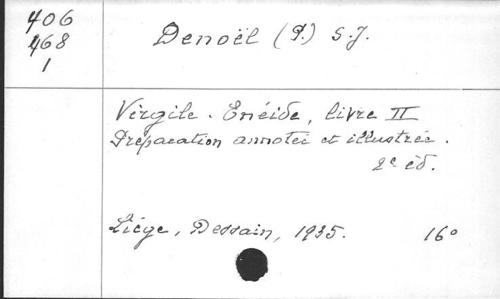 406
468
1
Denoël (P.) S.J.
Virgile. Enéide, livre II
Préparation annotée et illustrée.
2e éd.
Liége, Dessain, 1935. 16°